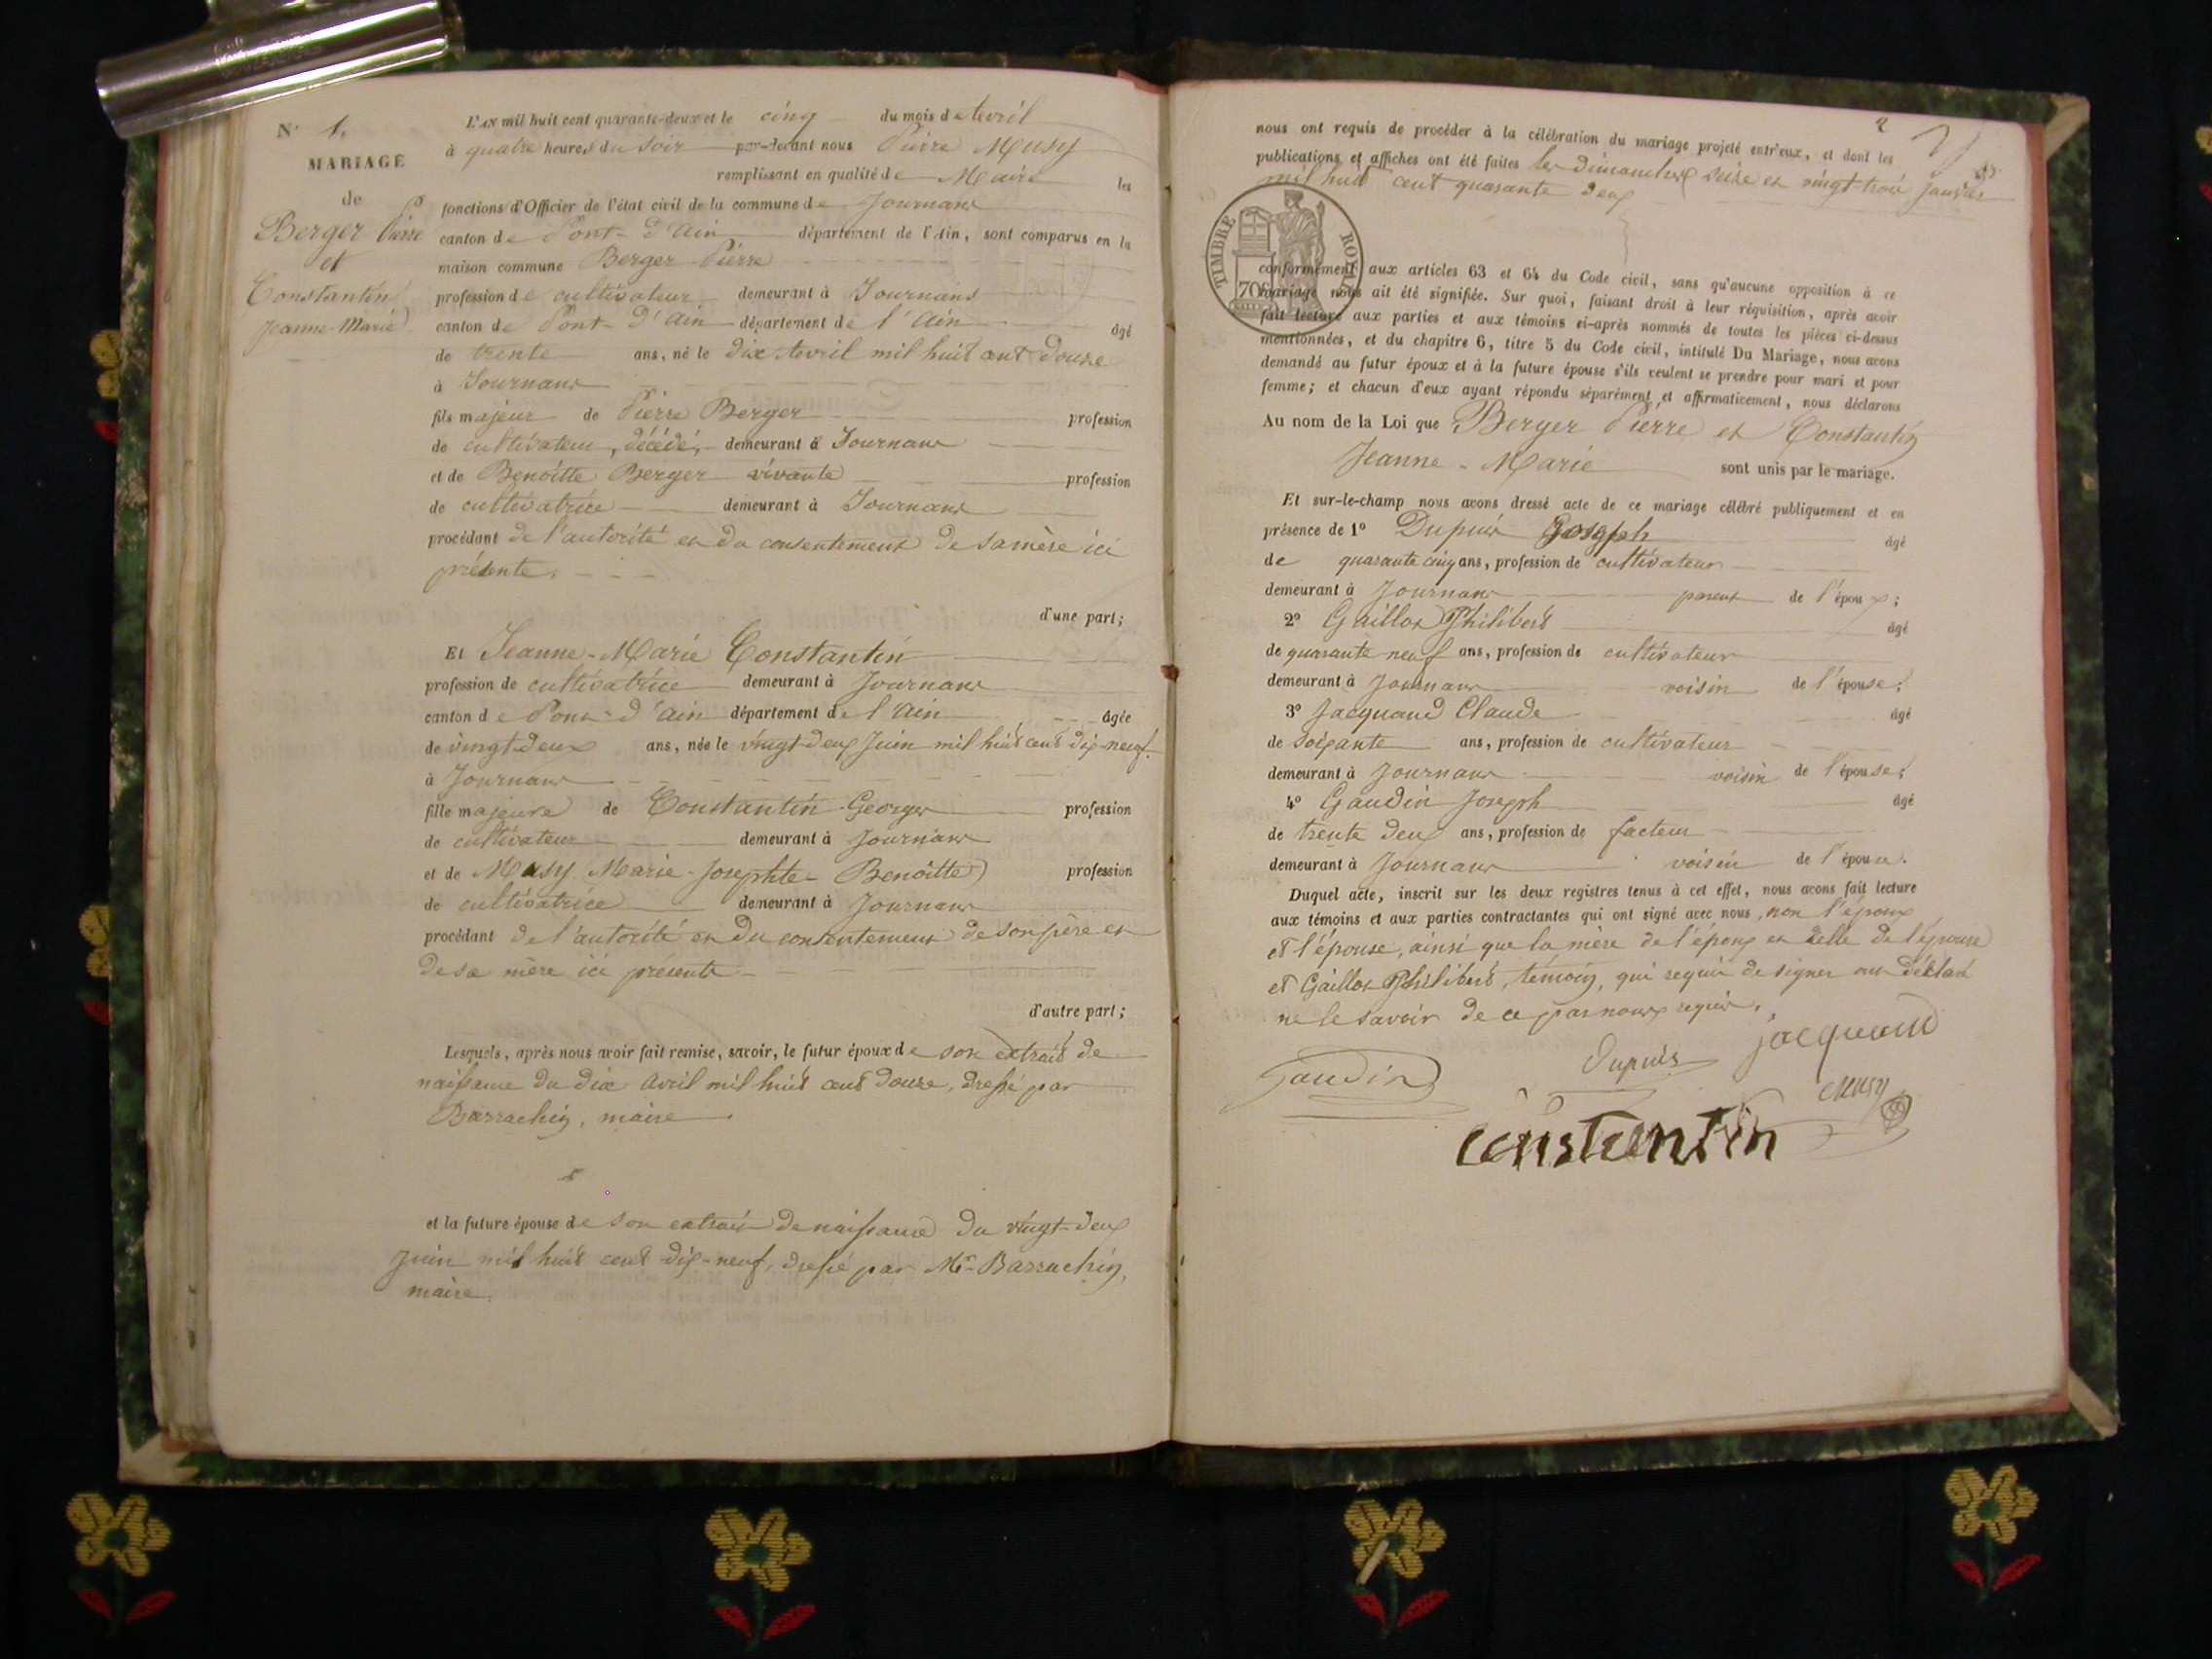 N° 1.
MARIAGE
de
Berger Pierre
et
Constantin
Jeanne-Marie
L'AN mil huit cent quarante-deux et le cinq du mois d'Avril
à quatre heures du soir par-devant nous Pierre Musy
remplissant en qualité de Maire les
fonctions d'Officier de l'état civil de la commune de Journans
canton de Pont-d'Ain département de l'Ain, sont comparus en la
maison commune Berger Pierre
profession de cultivateur demeurant à Journans
canton de Pont-d'Ain département de l'Ain âgé
de trente ans, né le dix Avril mil huit cent douze
à Journans
fils majeur de Pierre Berger profession
de cultivateur, décédé, demeurant à Journans
et de Benoîtte Berger vivante profession
de cultivatrice demeurant à Journans
procédant de l'autorité et du consentement de sa mère ici
présente.
d'une part;
Et Jeanne-Marie Constantin
profession de cultivatrice demeurant à Journans
canton de Pont-d'Ain département de l'Ain âgée
de vingt-deux ans, née le vingt-deux Juin mil huit cent dix-neuf
à Journans
fille majeure de Constantin Georges profession
de cultivateur demeurant à Journans
et de Musy Marie-Josephte-Benoîtte profession
de cultivatrice demeurant à Journans
procédant de l'autorité et du consentement de son père et
de sa mère ici présente
d'autre part;
Lesquels, après nous avoir fait remise, savoir, le futur époux de son extrait de
naissance du dix avril mil huit cent douze, dressé par
Barrachin, maire
et la future épouse de son extrait de naissance du vingt-deux
juin mil huit cent dix-neuf, dressé par Mr Barrachin,
maire.
2
nous ont requis de procéder à la célébration du mariage projeté entr'eux, et dont les
publications et affiches ont été faites les dimanches seize et vingt-trois janvier
mil huit cent quarante deux
TIMBRE ROYAL
70c
conformément aux articles 63 et 64 du Code civil, sans qu'aucune opposition à ce
mariage nous ait été signifiée. Sur quoi, faisant droit à leur réquisition, après avoir
fait lecture aux parties et aux témoins ci-après nommés de toutes les pièces ci-dessus
mentionnées, et du chapitre 6, titre 5 du Code civil, intitulé Du Mariage, nous avons
demandé au futur époux et à la future épouse s'ils veulent se prendre pour mari et pour
femme; et chacun d'eux ayant répondu séparément et affirmativement, nous déclarons
Au nom de la Loi que Berger Pierre et Constantin
Jeanne-Marie sont unis par le mariage.
Et sur-le-champ nous avons dressé acte de ce mariage célébré publiquement et en
présence de 1° Dupuis Joseph âgé
de quarante cinq ans, profession de cultivateur
demeurant à Journans parent de l'époux;
2° Gaillot Philibert âgé
de quarante neuf ans, profession de cultivateur
demeurant à Journans voisin de l'épouse;
3° Jacquand Claude âgé
de soixante ans, profession de cultivateur
demeurant à Journans voisin de l'épouse;
4° Gaudin Joseph âgé
de trente deux ans, profession de facteur
demeurant à Journans voisin de l'épouse.
Duquel acte, inscrit sur les deux registres tenus à cet effet, nous avons fait lecture
aux témoins et aux parties contractantes qui ont signé avec nous, non l'époux
et l'épouse, ainsi que la mère de l'époux et celle de l'épouse
et Gaillot Philibert, témoin, qui requis de signer ont déclaré
ne le savoir de ce par nous requis.
Gaudin
Dupuis
jacquand
Musy
constantin